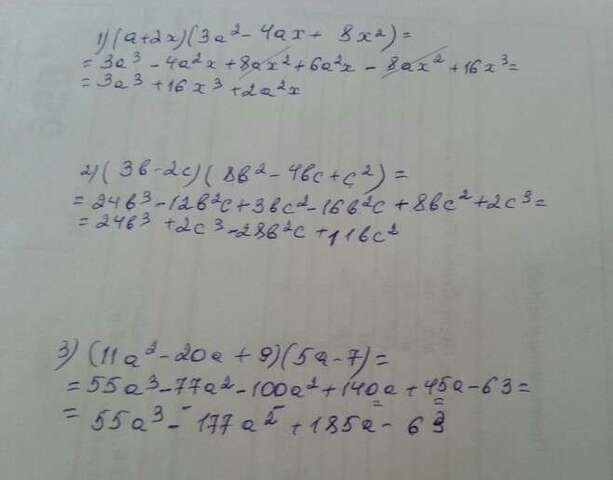 1) (a+2x)(3a² - 4ax + 8x²) =
= 3a³ - 4a²x + 8ax² + 6a²x - 8ax² + 16x³ =
= 3a³ + 16x³ + 2a²x
2) (3b - 2c)(8b² - 4bc + c²) =
= 24b³ - 12b²c + 3bc² - 16b²c + 8bc² + 2c³ =
= 24b³ + 2c³ - 28b²c + 11bc²
3) (11a² - 20a + 9)(5a - 7) =
= 55a³ - 77a² - 100a² + 140a + 45a - 63 =
= 55a³ - 177a² + 185a - 63